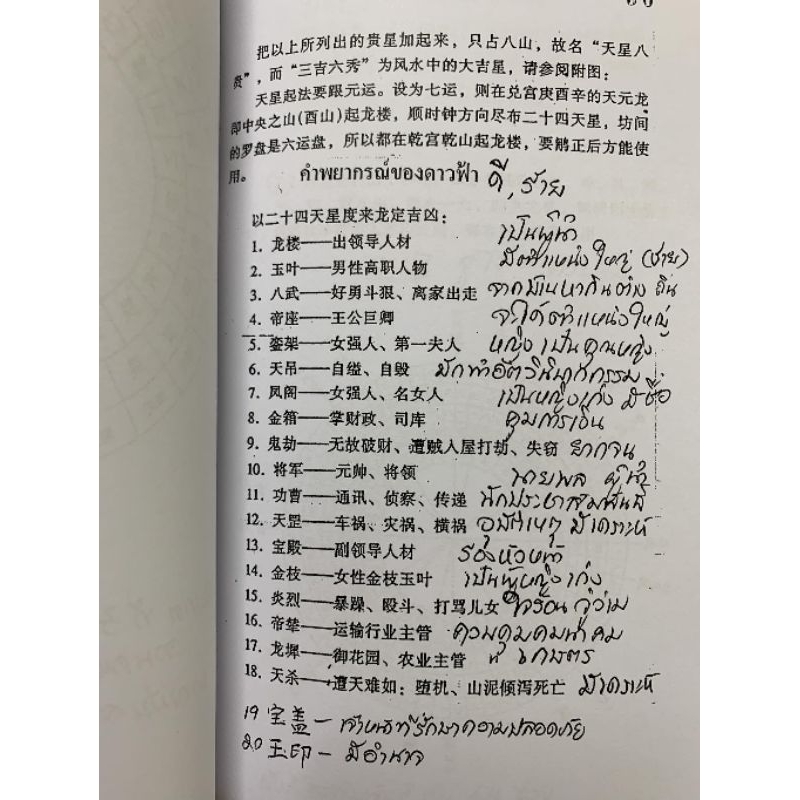 把以上所列出的贵星加起来，只占八山，故名“天星八
贵”，而“三吉六秀”为风水中的大吉星，请参阅附图：
天星起法要跟元运。设为七运，则在兑宫庚酉辛的天元龙
即中央之山(酉山)起龙楼，顺时钟方向尽布二十四天星，坊间
的罗盘是六运盘，所以都在乾宫乾山起龙楼，要鹇正后方能使
用。 คำพยากรณ์ของดาวฟ้า ดี, ร้าย
以二十四天星度来龙定吉凶：
1. 龙楼——出领导人材 เป็นผู้นำ
2. 玉叶——男性高职人物 มีตำแหน่งใหญ่ (ชาย)
3. 八武——好勇斗狠、离家出走 จากมิ่นหากินต่างถิ่น
4. 帝座——王公巨卿 จะได้ตำแหน่งใหญ่
5. 銮架——女强人、第一夫人 หญิงเป็นคุณหญิง
6. 天吊——自缢、自毁 มักทำอัตวินิบาตกรรม
7. 凤阁——女强人、名女人 เป็นหญิงเก่ง มีชื่อ
8. 金箱——掌财政、司库 คุมการเงิน
9. 鬼劫——无故破财、遭贼入屋打劫、失窃 ยากจน
10. 将军——元帅、将领 นายพล ผู้นำ
11. 功曹——通讯、侦察、传递 นักประชาสัมพันธ์
12. 天罡——车祸、灾祸、横祸 อุบัติเหตุ มีเคราะห์
13. 宝殿——副领导人材 รองหัวหน้า
14. 金枝——女性金枝玉叶 เป็นผู้หญิงเก่ง
15. 炎烈——暴躁、殴斗、打骂儿女 ใจร้อน วู่วาม
16. 帝辇——运输行业主管 ควบคุมคมนาคม
17. 龙墀——御花园、农业主管 เกษตร
18. 天杀——遭天难如：堕机、山泥倾泻死亡 มีเคราะห์
19 宝盖 – เจ้าหน้าที่รักษาความปลอดภัย
20 玉印 – มีอำนาจ